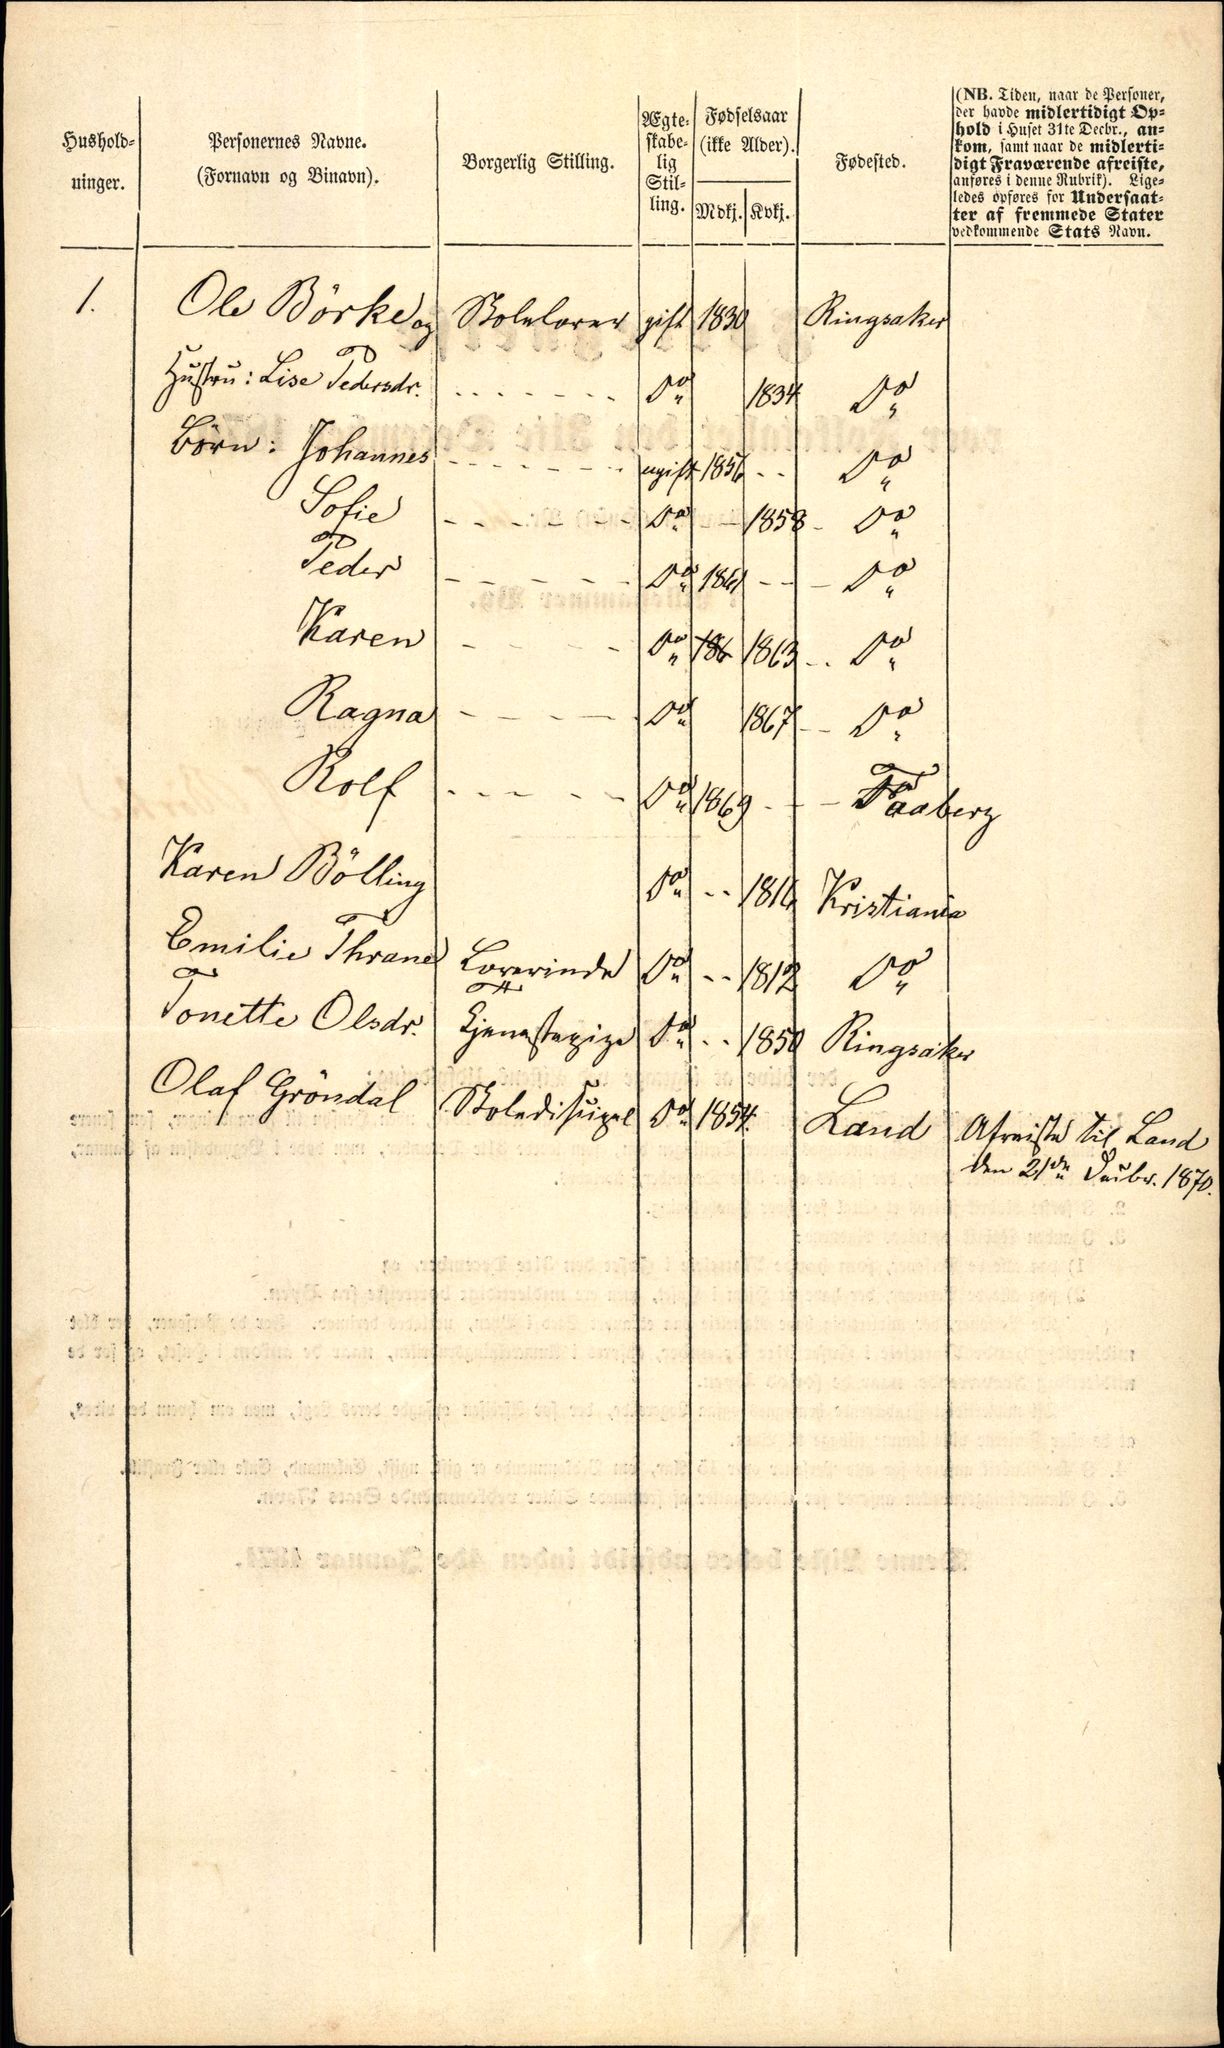 Hushold-
ninger.
Personernes Navne.
(Fornavn og Binavn).
Borgerlig Stilling.
Ægte-
skabe-
lig
Stil-
ling.
Fødselsaar
(ikke Alder).
Mdkj. Kvkj.
Fødested.
(NB. Tiden, naar de Personer,
der havde midlertidigt Op-
hold i Huset 31te Decbr., an-
kom, samt naar de midlerti-
digt Fraværende afreiste,
anføres i denne Rubrik). Lige-
ledes opføres for Undersaat-
ter af fremmede Stater
vedkommende Stats Navn.
1. Ole Börke og Skolelærer gift 1830 Ringsaker
Hustru: Lise Pedersdr. Do 1834 Do
Börn: Johannes ugift 1856 Do
Sofie Do 1858 Do
Peder Do 1861 Do
Karen Do 186 1863 Do
Ragna Do 1867 Do
Rolf Do 1869 Faaberg
Karen Bölling Do 1816 Kristiania
Emilie Thrane Lærerinde Do 1812 Do
Tonette Olsdr. Tjenestepige Do 1850 Ringsaker
Olaf Gröndal Skoledisipel Do 1854. Land Afreiste til Land
den 21de Decbr. 1870.